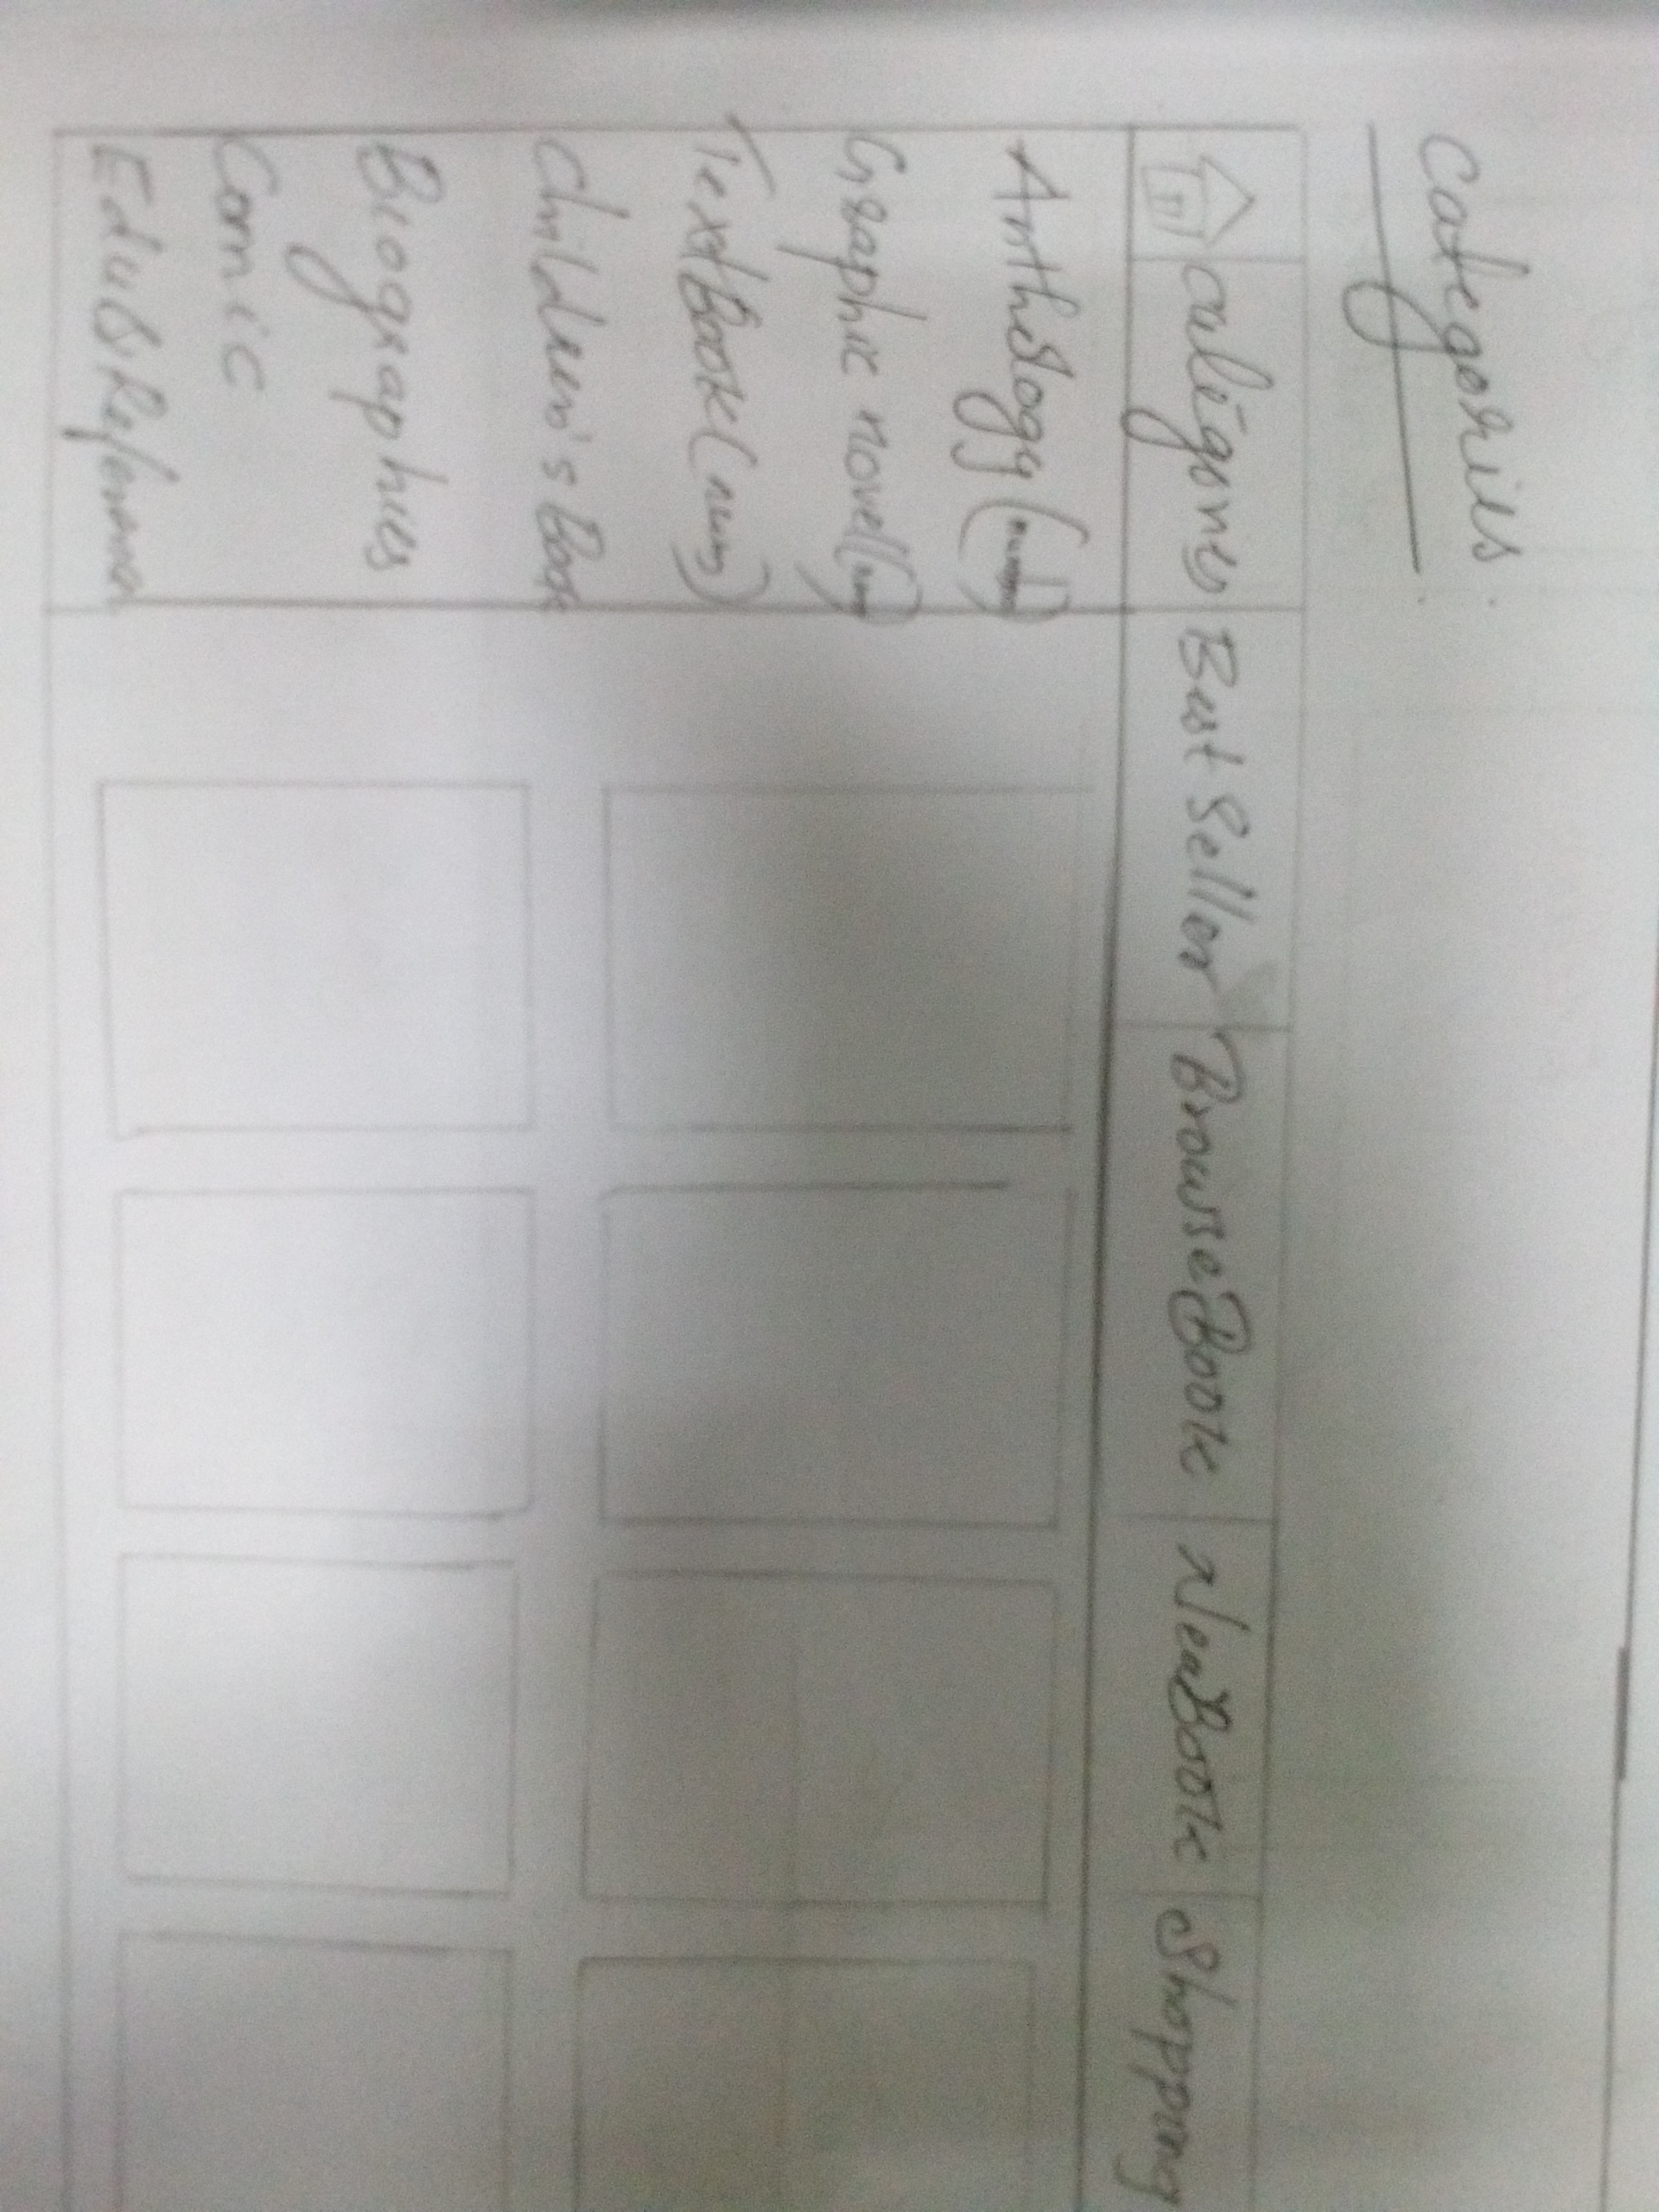 Categories
Categories Best Seller Browse Book New Book Shopping
Anthology (num)
Graphic novel (num)
Text Book (num)
Children's Book
Biographies
Comic
Edu & Reference